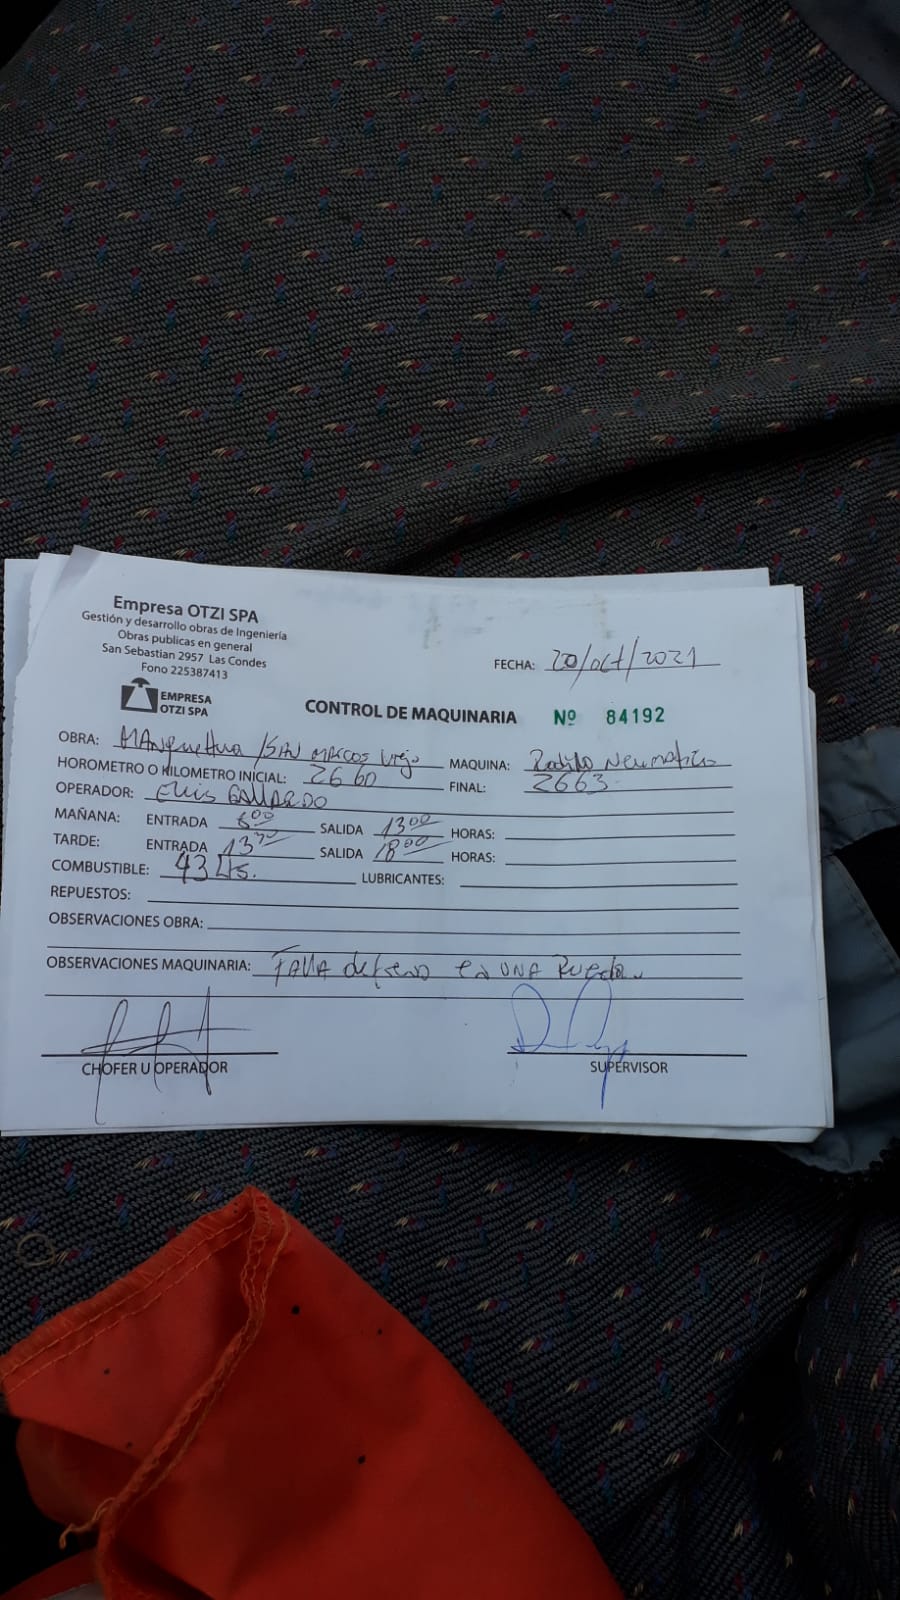 Empresa OTZI SPA
Gestión y desarrollo obras de Ingeniería
Obras publicas en general
San Sebastian 2957 Las Condes
Fono 225387413
EMPRESA
OTZI SPA
FECHA: 20/oct/2021
CONTROL DE MAQUINARIA Nº 84192
OBRA: MANquehua /SAN MARCOS Viejo MAQUINA: Rodillo Neumatico
HOROMETRO O KILOMETRO INICIAL: 2660 FINAL: 2663
OPERADOR: GALLARDO
MAÑANA: ENTRADA 8:00 SALIDA 13:00 HORAS:
TARDE: ENTRADA 13:30 SALIDA 18:00 HORAS:
COMBUSTIBLE: 43 Lts. LUBRICANTES:
REPUESTOS:
OBSERVACIONES OBRA:
OBSERVACIONES MAQUINARIA: FALLA de freno en UNA Rueda.
CHOFER U OPERADOR SUPERVISOR